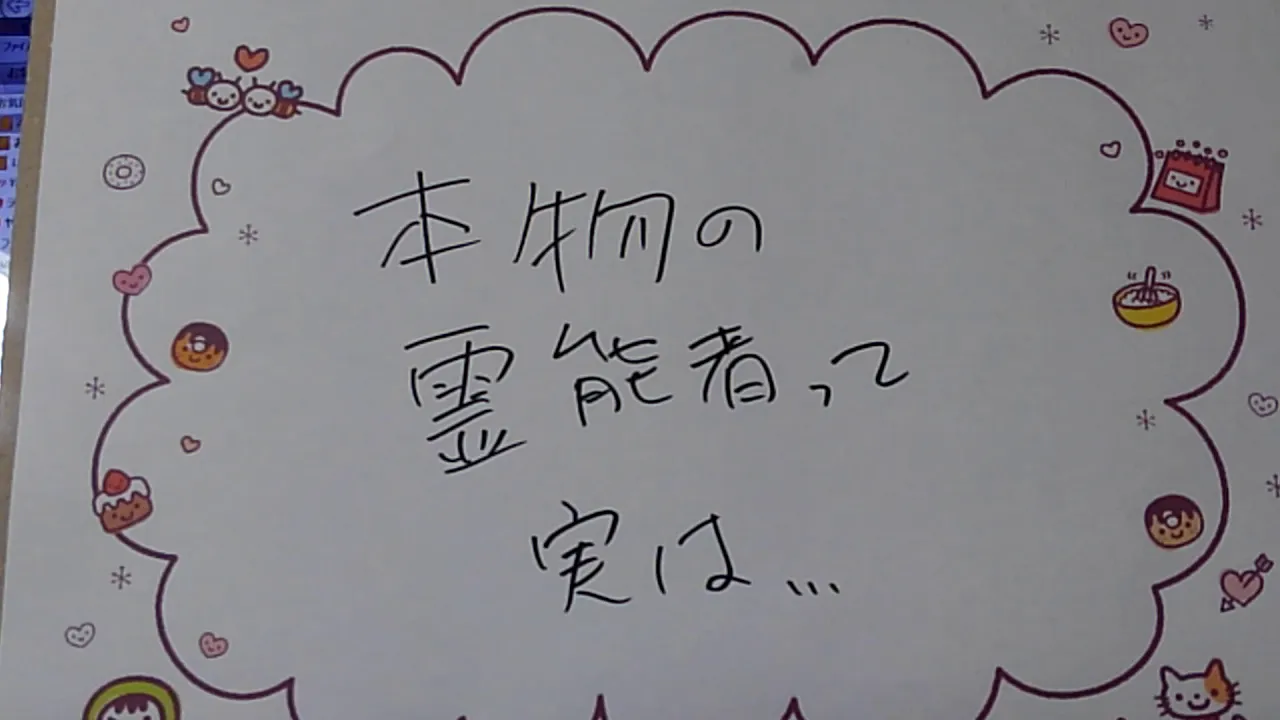 本物の
霊能者って
実は...